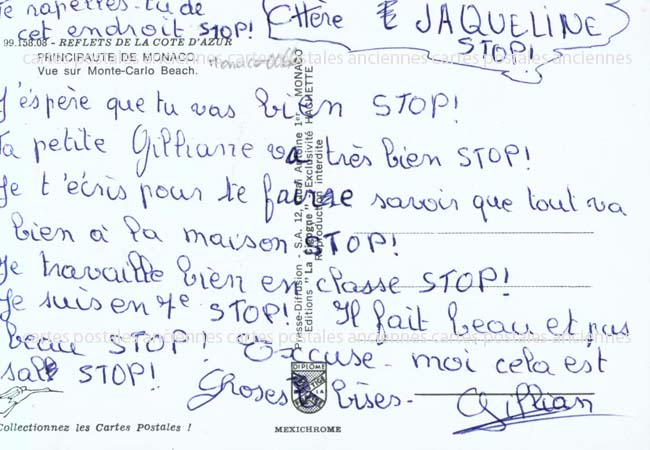 Te rapelles-tu de
cet endroit STOP!
Chère JAQUELINE
STOP!
99.158.03 - REFLETS DE LA COTE D'AZUR
PRINCIPAUTE DE MONACO
Vue sur Monte-Carlo Beach.
Monaco
cartes postales anciennes cartes postales anciennes cartes postales anciennes
J'éspère que tu vas bien STOP!
Ta petite Gilliane va très bien STOP!
Je t'écris pour te faire savoir que tout va
bien à la maison STOP!
Je travaille bien en classe STOP!
Je suis en 7e STOP! Il fait beau et pas
beau STOP! Excuse-moi cela est
sale STOP!
Groses bises-
Gillian
cartes postales anciennes cartes postales anciennes cartes postales anciennes
Presse-Diffusion - S.A. 12, Quai Antoine 1er, MONACO
Editions "La Cigogne" - Exclusivité HACHETTE
Reproduction interdite
DIPLOME
PRESTIGE
Collectionnez les Cartes Postales !
MEXICHROME